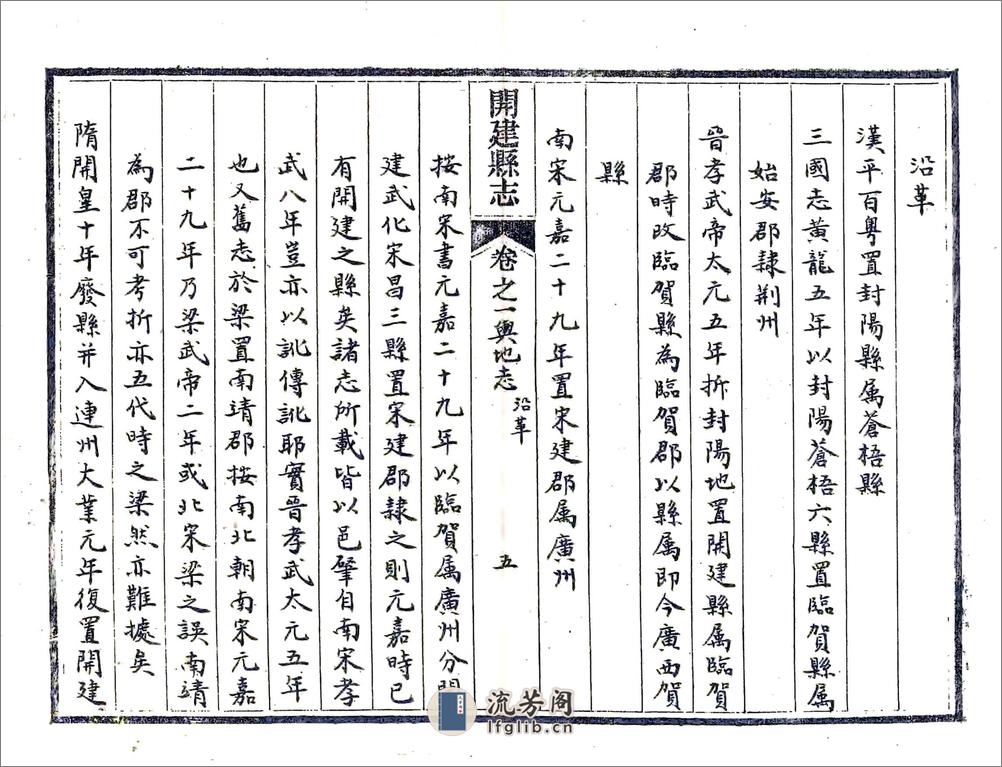 沿革
漢平百粵置封陽縣属蒼梧縣
三國志黃龍五年以封陽蒼梧六縣置臨賀縣属
始安郡隸荆州
晉孝武帝太元五年拆封陽地置開建縣属臨賀
郡時改臨賀縣為臨賀郡以縣属即今廣西賀
縣
南宋元嘉二十九年置宋建郡属廣州
開建縣志
卷之一輿地志
沿革
五
按南宋書元嘉二十九年以臨賀属廣州分開
建武化宋昌三縣置宋建郡隸之則元嘉時已
有開建之縣矣諸志所載皆以邑肇自南宋孝
武八年豈亦以訛傳訛耶實晉孝武太元五年
也又舊志於梁置南靖郡按南北朝南宋元嘉
二十九年乃梁武帝二年或北宋梁之誤南靖
為郡不可考折亦五代時之梁然亦難據矣
隋開皇十年廢縣并入連州大業元年復置開建
流芳阁
lfglib.cn